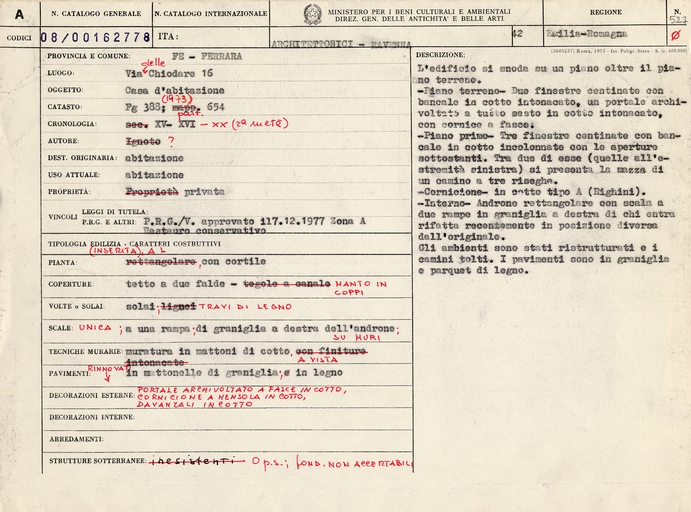 A
N. CATALOGO GENERALE
N. CATALOGO INTERNAZIONALE
MINISTERO PER I BENI CULTURALI E AMBIENTALI
DIREZ. GEN. DELLE ANTICHITA' E BELLE ARTI
REGIONE
N.
527
CODICI
08/00162778
ITA:
ARCHITETTONICI - RAVENNA
42
Emilia-Romagna
Ø
(3605237) Roma, 1975 - Ist. Poligr. Stato - S. (c. 400.000)
PROVINCIA E COMUNE: FE - FERRARA
LUOGO: Via delle Chiodare 16
OGGETTO: Casa d'abitazione
CATASTO: Fg 388; (1973) mapp. part. 654
CRONOLOGIA: sec. XV- XVI - XX (2ª METÀ)
AUTORE: Ignoto ?
DEST. ORIGINARIA: abitazione
USO ATTUALE: abitazione
PROPRIETÀ: Proprietà privata
VINCOLI
LEGGI DI TUTELA:
P.R.G. E ALTRI: P.R.G./V. approvato il7.12.1977 Zona A
Restauro conservativo
TIPOLOGIA EDILIZIA - CARATTERI COSTRUTTIVI
(INSERITA), A L
PIANTA: rettangolare, con cortile
COPERTURE: tetto a due falde - tegole a canale MANTO IN
COPPI
VOLTE o SOLAI: solai; lignei TRAVI DI LEGNO
SCALE: UNICA; a una rampa; di graniglia a destra dell'androne;
SU MURI
TECNICHE MURARIE: muratura in mattoni di cotto, con finiture
intonacate A VISTA
RINNOVATI
PAVIMENTI: in mattonelle di graniglia; e in legno
DECORAZIONI ESTERNE: PORTALE ARCHIVOLTATO A FASCE IN COTTO,
CORNICIONE A MENSOLA IN COTTO,
DAVANZALI IN COTTO
DECORAZIONI INTERNE:
ARREDAMENTI:
STRUTTURE SOTTERRANEE: inesistenti O p.s.; FOND. NON ACCERTABILI
DESCRIZIONE:
L'edificio si snoda su un piano oltre il pia-
no terreno.
-Piano terreno- Due finestre centinate con
bancale in cotto intonacato, un portale archi-
voltato a tutto sesto in cotto intonacato,
con cornice a fasce.
-Piano primo- Tre finestre centinate con ban-
cale in cotto incolonnate con le aperture
sottostanti. Tra due di esse (quelle all'e-
stremità sinistra) si presenta la mazza di
un camino a tre riseghe.
-Cornicione- in cotto tipo A (Righini).
-Interno- Androne rettangolare con scala a
due rampe in graniglia a destra di chi entra
rifatta recentemente in posizione diversa
dall'originale.
Gli ambienti sono stati ristrutturati e i
camini tolti. I pavimenti sono in graniglia
e parquet di legno.